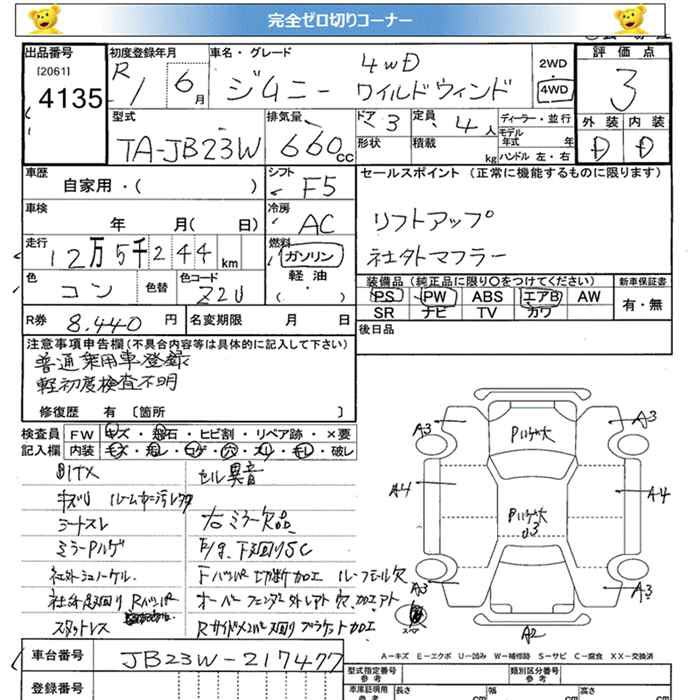 完全ゼロ切りコーナー
出品番号 初度登録年月 車名・グレード 評価点
[2061] R 4WD 2WD
4135 1 6月 ジムニー ワイルドウィンド 4WD 3
型式 排気量 ドア 3 定員 4人 ディーラー・並行 外装 内装
TA-JB23W 660cc 形状 積載 kg モデル年式 年 ハンドル 左・右 D D
車歴 シフト セールスポイント (正常に機能するものに限ります)
自家用・( ) F5
車検 冷房 リフトアップ
年 月( 日) AC
走行 燃料 社外マフラー
12万5千244km ガソリン
色 色替 色コード 軽油 装備品(純正品に限り○をつけてください) 新車保証書
コン Z2U ( ・ ) PS PW ABS エアB AW 有・無
SR ナビ TV カワ
R券 8,440円 名変期限 月 日 後日品
注意事項申告欄(不具合内容等は具体的に記入して下さい)
普通乗用車登録
軽初度検査不明
修復歴 有 〔箇所 〕
検査員 FW キズ・飛石・ヒビ割・リペア跡・×要
記入欄 内装 キズ・汚レ・コゲ・穴・スレ・モレ・破レ
セル異音
シートスレ 右ミラー欠品
ミラーPハゲ F/g、下回りSC
社外シュノーケル Fバンパー切断加工
オーバーフェンダー外レアト穴、加工アト
スタットレス
車台番号 JB23W-217477
登録番号
A3 A3
Pハゲ大
A4 A4
Pハゲ大
U3
A3 A3
スペア
A2
A-キズ E-エクボ U-凹み W-補修跡 S-サビ C-腐食 XX-交換済
型式指定番号 参考 類別区分番号 参考
車庫証明用 参考 長さ cm 幅 cm 高さ cm